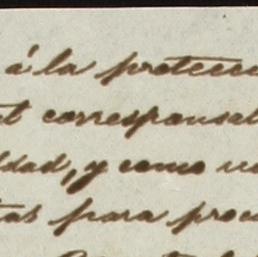 á la protecci
corresponsal
dad, y como
tas para proc